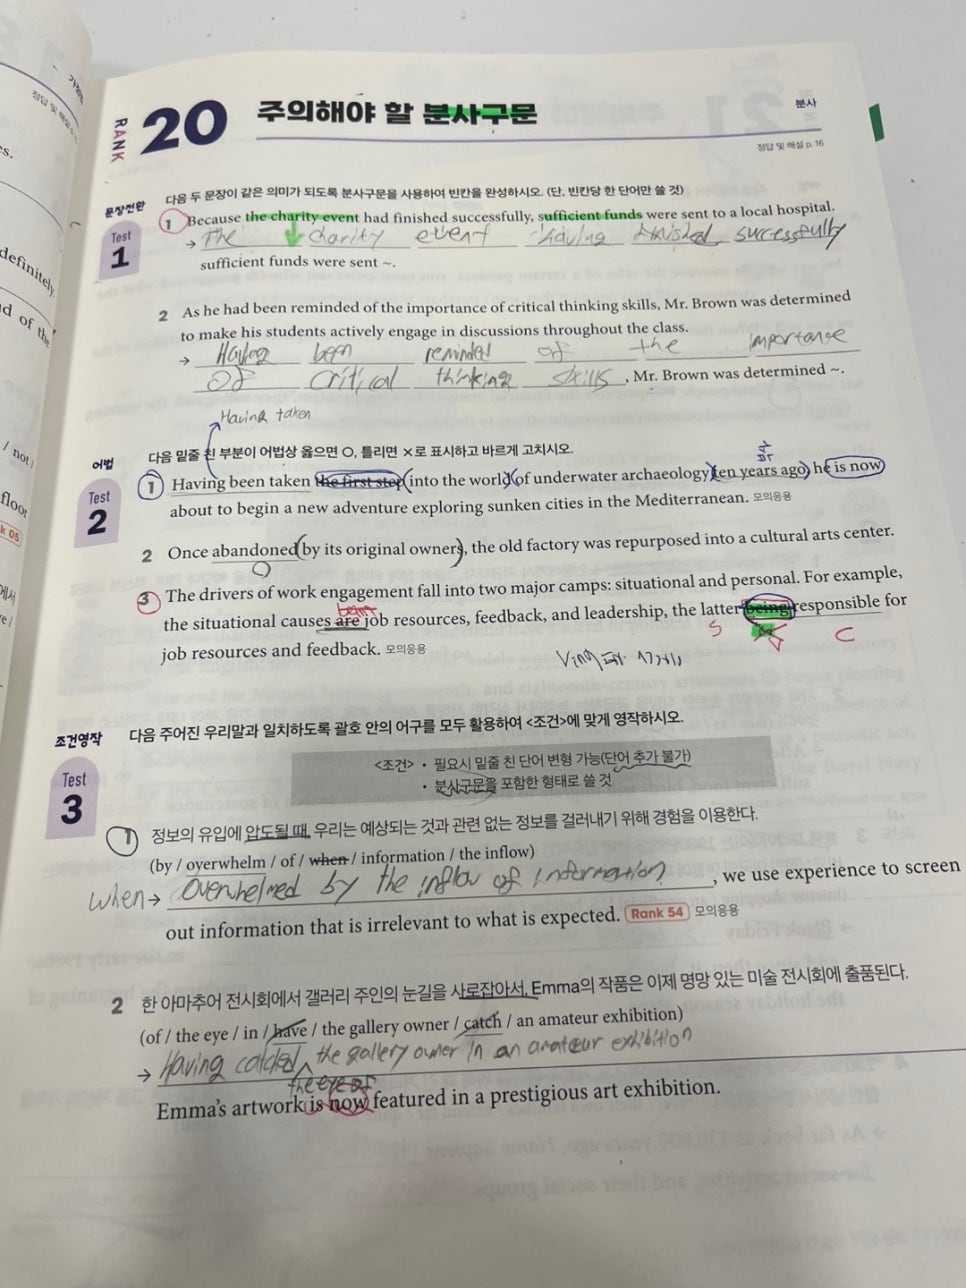 RANK 20 주의해야 할 분사구문
분사
정답 및 해설 p. 16
문장전환
Test 1
다음 두 문장이 같은 의미가 되도록 분사구문을 사용하여 빈칸을 완성하시오. (단, 빈칸당 한 단어만 쓸 것)
1 Because the charity event had finished successfully, sufficient funds were sent to a local hospital.
→ The charity event having finished, sucessfully
sufficient funds were sent ~.
2 As he had been reminded of the importance of critical thinking skills, Mr. Brown was determined
to make his students actively engage in discussions throughout the class.
→ Having been reminded of the importance
of critical thinking skills, Mr. Brown was determined ~.
Having taken
어법
Test 2
다음 밑줄 친 부분이 어법상 옳으면 O, 틀리면 ×로 표시하고 바르게 고치시오.
1 Having been taken the first step into the world of underwater archaeology ten years ago, he is now
about to begin a new adventure exploring sunken cities in the Mediterranean. 모의응용
2 Once abandoned by its original owners, the old factory was repurposed into a cultural arts center.
O
3 The drivers of work engagement fall into two major camps: situational and personal. For example,
being
the situational causes are job resources, feedback, and leadership, the latter being responsible for
S V C
job resources and feedback. 모의응용
조건영작
Test 3
다음 주어진 우리말과 일치하도록 괄호 안의 어구를 모두 활용하여 <조건>에 맞게 영작하시오.
<조건> • 필요시 밑줄 친 단어 변형 가능(단어 추가 불가)
• 분사구문을 포함한 형태로 쓸 것
1 정보의 유입에 압도될 때, 우리는 예상되는 것과 관련 없는 정보를 걸러내기 위해 경험을 이용한다.
(by / overwhelm / of / when / information / the inflow)
when → overwhelmed by the inflow of information, we use experience to screen
out information that is irrelevant to what is expected. Rank 54 모의응용
2 한 아마추어 전시회에서 갤러리 주인의 눈길을 사로잡아서, Emma의 작품은 이제 명망 있는 미술 전시회에 출품된다.
(of / the eye / in / have / the gallery owner / catch / an amateur exhibition)
→ Having catched the gallery owner in an amateur exhibition
the eye of
Emma's artwork is now featured in a prestigious art exhibition.